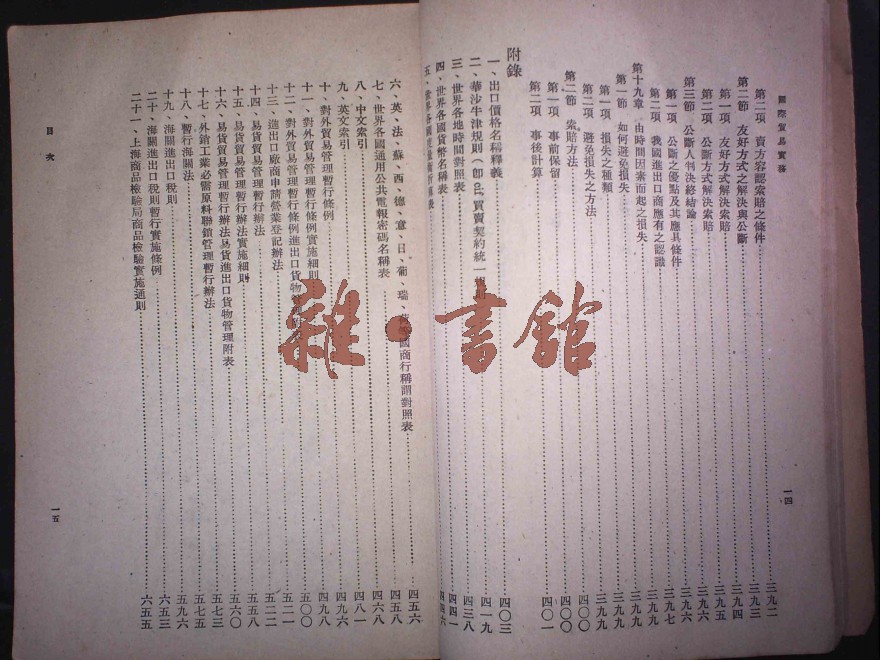 國際貿易實務
第二項 賣方容認索賠之條件 三九二
第二節 友好方式之解決與公斷 三九四
第一項 友好方式解決索賠 三九五
第二項 公斷方式解決索賠 三九六
第三節 公斷人判決終結論 三九六
第一項 公斷之優點及其應具條件 三九七
第二項 我國進出口商應有之認識 三九九
第十九章 由時間因素而起之損失 三九九
第一節 如何避免損失 三九九
第一項 損失之種類 三九九
第二項 避免損失之方法 四〇〇
第二節 索賠方法 四〇〇
第一項 事前保留 四〇〇
第二項 事後計算 四〇一
一四
附錄
一、出口價格名稱釋義 四〇三
二、華沙牛津規則（卽 cif 買賣契約統一規則 四一九
三、世界各地時間對照表 四三八
四、世界各國貨幣名稱表 四四一
五、世界各國度量衡 表 四四六
六、英、法、蘇、西、德、意、日、葡、瑞、荷等國商行稱謂對照表 四五六
七、世界各國通用公共電報密碼名稱表 四五八
八、中文索引 四六八
九、英文索引 四八一
十、對外貿易管理暫行條例 四九六
十一、對外貿易管理暫行條例實施細則 四九八
十二、對外貿易管理暫行條例進出口貨物管理附表 五〇〇
十三、進出口廠商申請營業登記辦法 五二一
十四、易貨貿易管理暫行辦法 五二二
十五、易貨貿易管理暫行辦法實施細則 五五八
十六、易貨貿易管理暫行辦法易貨進出口貨物管理附表 五六〇
十七、外銷工業必需原料聯鎖管理暫行辦法 五六三
十八、暫行海關法 五七五
十九、海關進出口稅則 五九六
二十、海關進出口稅則暫行實施條例 六五三
二十一、上海商品檢驗局商品檢驗實施通則 六五五
目次
一五
雜·書館